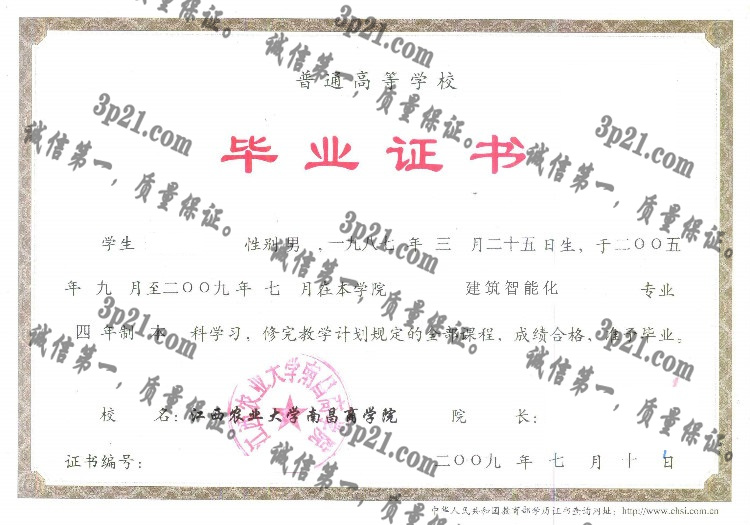 普通高等学校
毕业证书
学生 性别男，一九八七年三月二十五日生，于二〇〇五
年九月至二〇〇九年七月在本学院 建筑智能化 专业
四年制本科学习，修完教学计划规定的全部课程，成绩合格，准予毕业。
校 名：江西农业大学南昌商学院 院 长：
证书编号： 二〇〇九年七月十日
中华人民共和国教育部学历证书查询网址：http://www.chsi.com.cn
江西农业大学南昌商学院
3p21.com
诚信第一，质量保证。
3p21.com
诚信第一，质量保证。
3p21.com
诚信第一，质量保证。
3p21.com
诚信第一，质量保证。
3p21.com
诚信第一，质量保证。
3p21.com
诚信第一，质量保证。
3p21.com
诚信第一，质量保证。
3p21.com
诚信第一，质量保证。